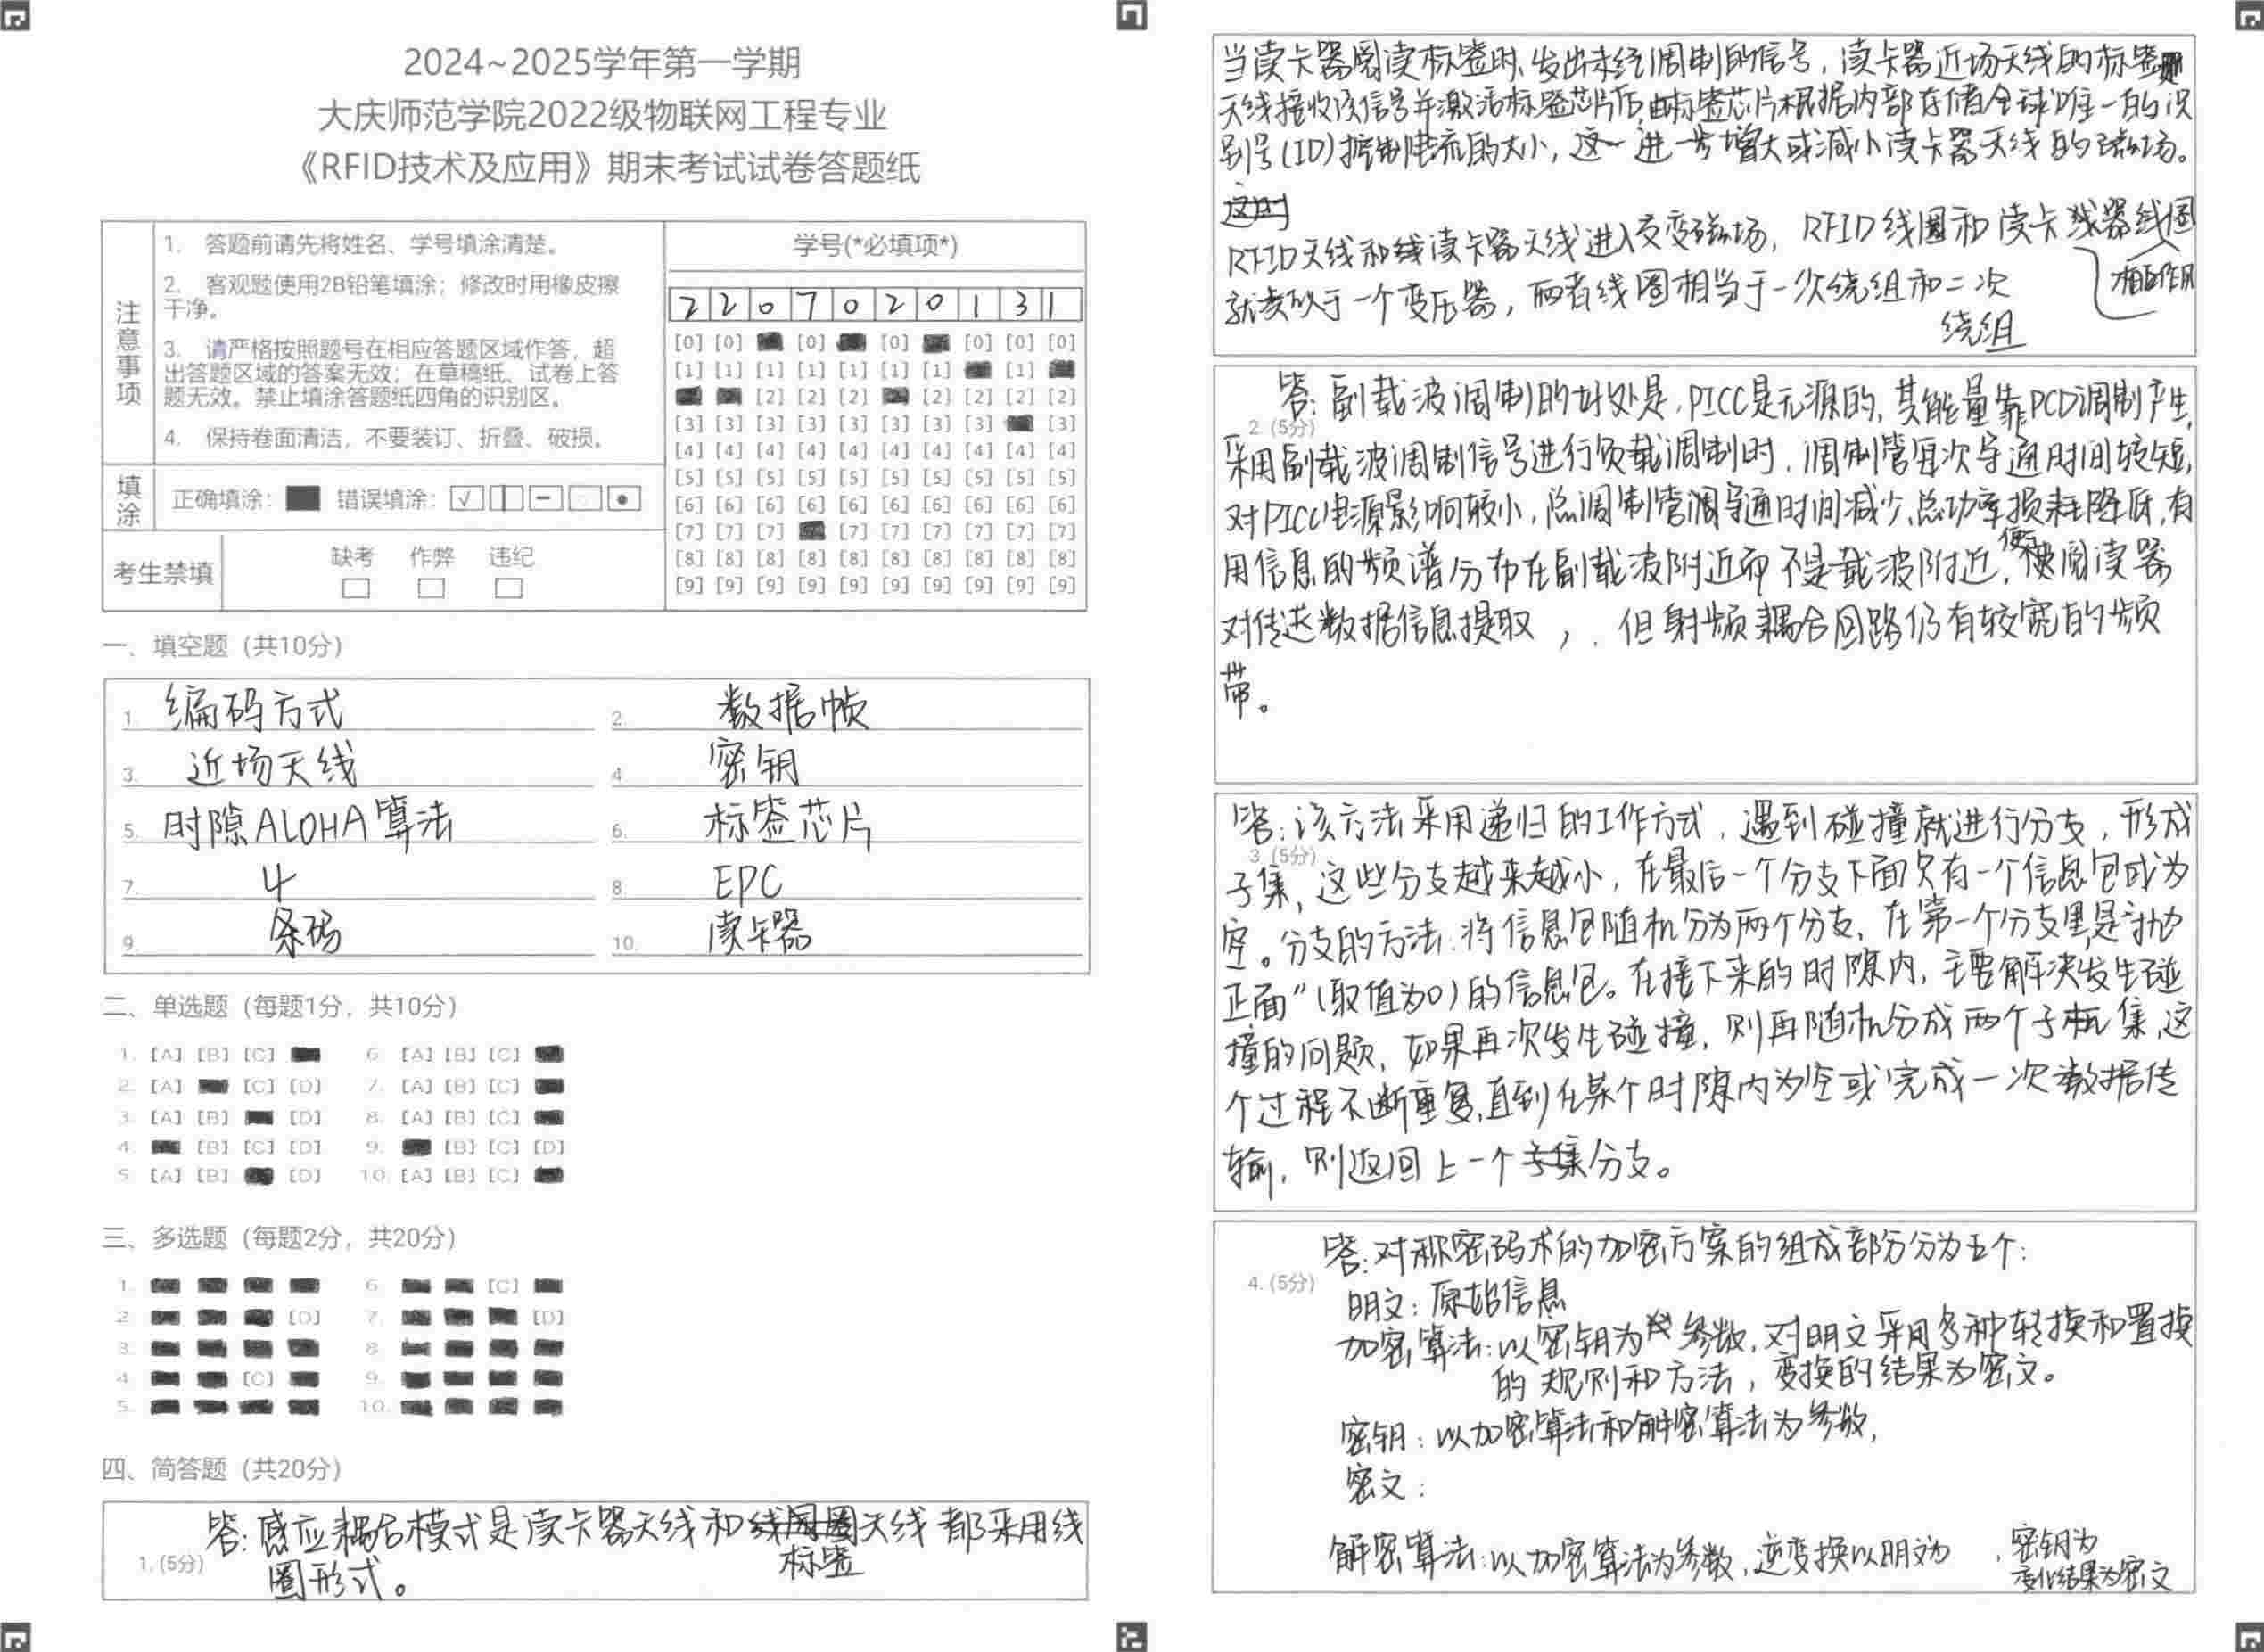 2024~2025学年第一学期
大庆师范学院2022级物联网工程专业
《RFID技术及应用》期末考试试卷答题纸
注意事项
1. 答题前请先将姓名、学号填涂清楚。
2. 客观题使用2B铅笔填涂；修改时用橡皮擦
干净。
3. 请严格按照题号在相应答题区域作答，超
出答题区域的答案无效；在草稿纸、试卷上答
题无效。禁止填涂答题纸四角的识别区。
4. 保持卷面清洁，不要装订、折叠、破损。
填涂
正确填涂： 错误填涂：
考生禁填
缺考 作弊 违纪
学号(*必填项*)
2 2 0 7 0 2 0 1 3 1
[0] [0] [0] [0] [0] [0]
[1] [1] [1] [1] [1] [1] [1] [1]
[2] [2] [2] [2] [2] [2] [2]
[3] [3] [3] [3] [3] [3] [3] [3] [3]
[4] [4] [4] [4] [4] [4] [4] [4] [4] [4]
[5] [5] [5] [5] [5] [5] [5] [5] [5] [5]
[6] [6] [6] [6] [6] [6] [6] [6] [6] [6]
[7] [7] [7] [7] [7] [7] [7] [7] [7]
[8] [8] [8] [8] [8] [8] [8] [8] [8] [8]
[9] [9] [9] [9] [9] [9] [9] [9] [9] [9]
一、填空题（共10分）
1. 编码方式 2. 数据帧
3. 近场天线 4. 密钥
5. 时隙ALOHA算法 6. 标签芯片
7. 4 8. EPC
9. 条码 10. 读卡器
二、单选题（每题1分，共10分）
1. [A] [B] [C] 6. [A] [B] [C]
2. [A] [C] [D] 7. [A] [B] [C]
3. [A] [B] [D] 8. [A] [B] [C]
4. [B] [C] [D] 9. [B] [C] [D]
5. [A] [B] [D] 10. [A] [B] [C]
三、多选题（每题2分，共20分）
1. 6. [C]
2. [D] 7. [D]
3. 8.
4. [C] 9.
5. 10.
四、简答题（共20分）
1. (5分)
答：感应耦合模式是读卡器天线和标签天线都采用线
圈形式。
当读卡器阅读标签时、发出未经调制的信号，读卡器近场天线的标签
天线接收该信号并激活标签芯片后，由标签芯片根据内部存储全球唯一的识
别号(ID)控制电流的大小，这一进一步增大或减小读卡器天线的磁场。
这时
RFID天线和读卡器天线进入交变磁场，RFID线圈和读卡器线圈
相互作用
就类似于一个变压器，两者线圈相当于一次绕组和二次
绕组
答：副载波调制的好处是，PICC是无源的，其能量靠PCD调制产生，
2. (5分)
采用副载波调制信号进行负载调制时，调制管每次导通时间较短，
对PICC电源影响较小，总调制管调导通时间减少，总功率损耗降低，有
用信息的频谱分布在副载波附近而不是载波附近，便于阅读器
对传送数据信息提取，但射频耦合回路仍有较宽的频
带。
答：该方法采用递归的工作方式，遇到碰撞就进行分支，形成
3. (5分)
子集，这些分支越来越小，在最后一个分支下面只有一个信息包或为
空。分支的方法：将信息包随机分为两个分支，在第一个分支里，是"抛
正面"(取值为0)的信息包。在接下来的时隙内，主要解决发生碰
撞的问题，如果再次发生碰撞，则再随机分成两个子集，这
个过程不断重复，直到在某个时隙内为空或完成一次数据传
输，则返回上一个分支。
答：对称密码术的加密方案的组成部分分为五个：
4. (5分)
明文：原始信息
加密算法：以密钥为参数，对明文采用多种转换和置换
的规则和方法，变换的结果为密文。
密钥：以加密算法和解密算法为参数，
密文：
解密算法：以加密算法为参数，逆变换以明文为，密钥为
变化结果为密文